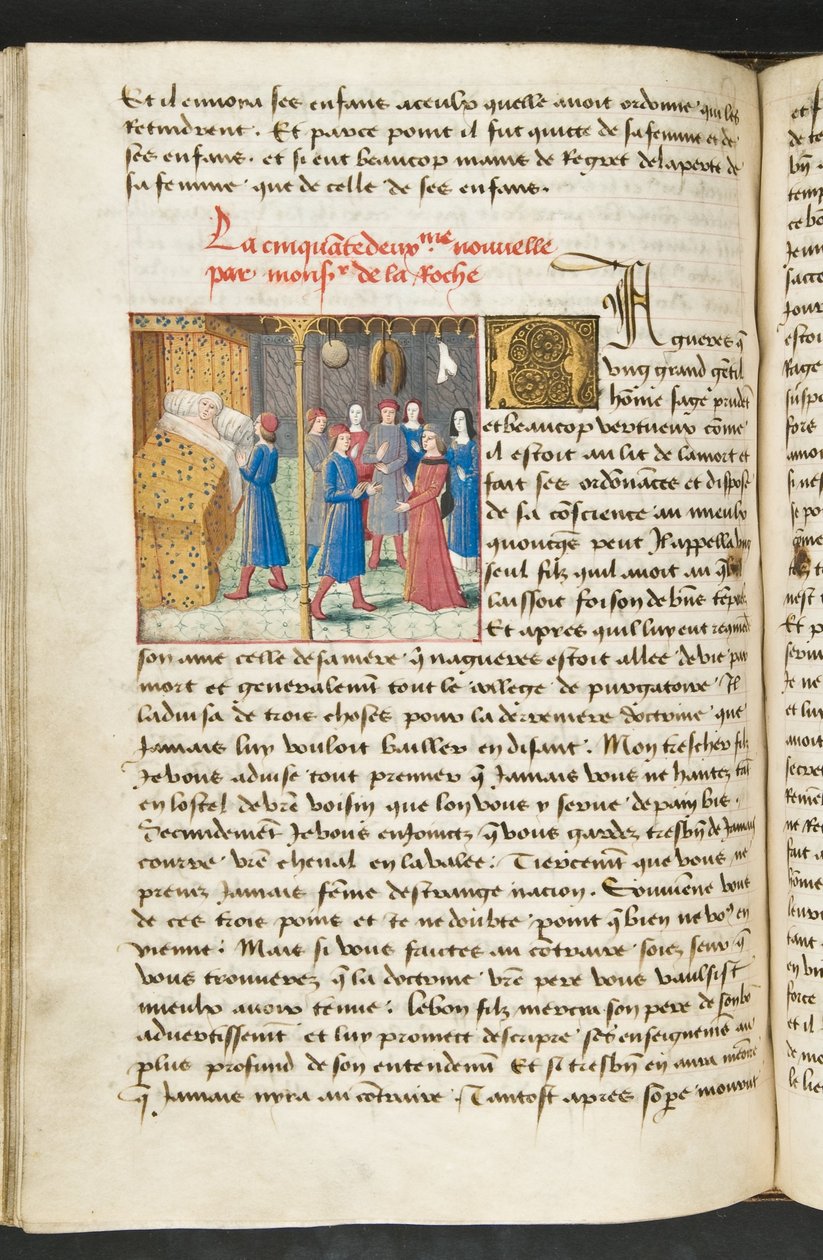 Et il envoya ses enfans a ceulx quelle avoit ordonne qui les
Retindrent. Et parce point il fut quitte de sa femme et de
ses enfans. et si eut beaucop mains de Regret de la perte de
sa femme que de celle de ses enfans.
La cinquātedeuxme nouvelle
par monsr de la Roche
NAgueres q̄
ung grand gētil
hōme sage prudēt
et beaucop vertueux cōme
il estoit au lit de la mort et
fait ses ordōnances et dispose
de sa cōscience au mieulx
quoncques peut Il appella ung
seul filz quil avoit au q̄l
laissoit foison de bīns tēporelz
Et apres quil luy eut recōmēde
son ame celle de sa mere q̄ nagueres estoit allee de vie par
mort et generalemt tout le college de purgatoire. Il
ladvisa de trois choses pour la derreniere doctrine que
Jamais luy vouloit bailler en disant. Mon treschier filz
Je vous advise tout premier q̄ Jamais vous ne hantez tāt
en lostel de vr̄e voisin que lon vous y serve de pain bis.
Secundement Je vous enJoinctz q̄ vous gardez tresbn̄ de Jamais
courre vr̄e cheval en la valee. Tiercemt que vous ne
prenez Jamais fēme destrange nacion. Souviene vous
de ces trois poins et Je ne doubte point q̄ bien ne vo9 en
vienne. Mais si vous faictes au cōtraire soiez seur q̄
vous trouverez q̄ la doctrine vr̄e pere vous vaulsist
mieulx avoir tenue. Le bon filz mercia son pere de son bō
advertissemt et luy promect descripre ses enseignemēs au
plus profund de son entendemt Et si tresbn̄ en aura memoire
q̄ Jamais nyra au cōtraire. Tantost apres sō pe mourut